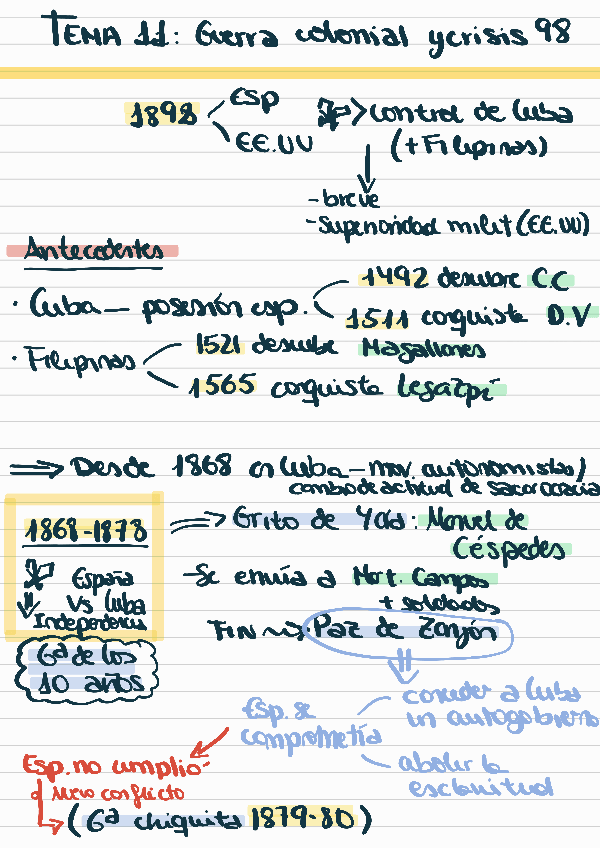 TEMA 11: Guerra colonial y crisis 98
1898 Esp
EE.UU
> Control de Cuba
(+ Filipinas)
- breve
- Superioridad milit (EE.UU)
Antecedentes
· Cuba — posesión esp. 1492 descubre C.C
1511 conquista D.V
· Filipinas 1521 descubre Magallanes
1565 conquista Legazpi
⇒ Desde 1868 en Cuba - mov. autonomistas /
cambio de actitud de sacarocracia
1868-1878 ⇒ Grito de Yara: Manuel de
Céspedes
España
vs Cuba
Independencia
- Se envía a Mart. Campos
+ soldados
FIN → Paz de Zanjón
Gª de los
10 años
Esp. se
comprometía
conceder a Cuba
un autogobierno
abolir la
esclavitud
Esp. no cumplio
Nuevo conflicto
(Gª chiquita 1879-80)